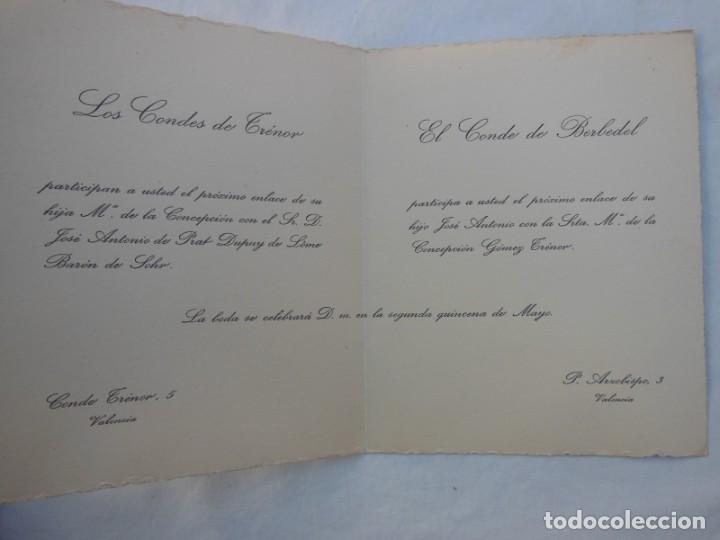 Los Condes de Trénor
participan a usted el próximo enlace de su
hija Mª. de la Concepción con el Sr. D.
José Antonio de Prat Dupuy de Lôme
Barón de Sohr.
El Conde de Berbedel
participa a usted el próximo enlace de su
hijo José Antonio con la Srta. Mª. de la
Concepción Gómez Trénor.
La boda se celebrará D. m. en la segunda quincena de Mayo.
Conde Trénor, 5
Valencia
P. Arzobispo, 3
Valencia
todocoleccion.net